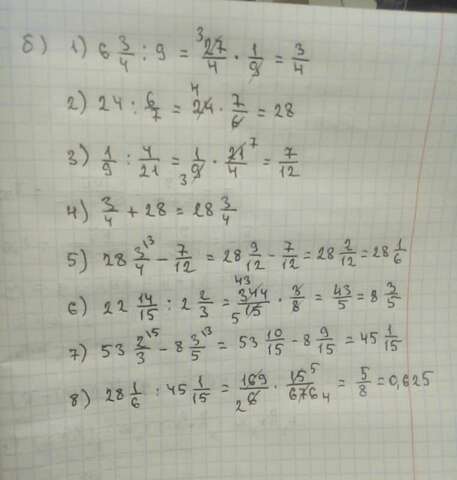 б) 1) 6 3/4 : 9 = 27/4 · 1/9 = 3/4
2) 24 : 6/7 = 24 · 7/6 = 28
3) 1/9 : 4/21 = 1/9 · 21/4 = 7/12
4) 3/4 + 28 = 28 3/4
5) 28 3/4 - 7/12 = 28 9/12 - 7/12 = 28 2/12 = 28 1/6
6) 22 14/15 : 2 2/3 = 344/15 · 3/8 = 43/5 = 8 3/5
7) 53 2/3 - 8 3/5 = 53 10/15 - 8 9/15 = 45 1/15
8) 28 1/6 : 45 1/15 = 169/6 · 15/676 = 5/8 = 0,625